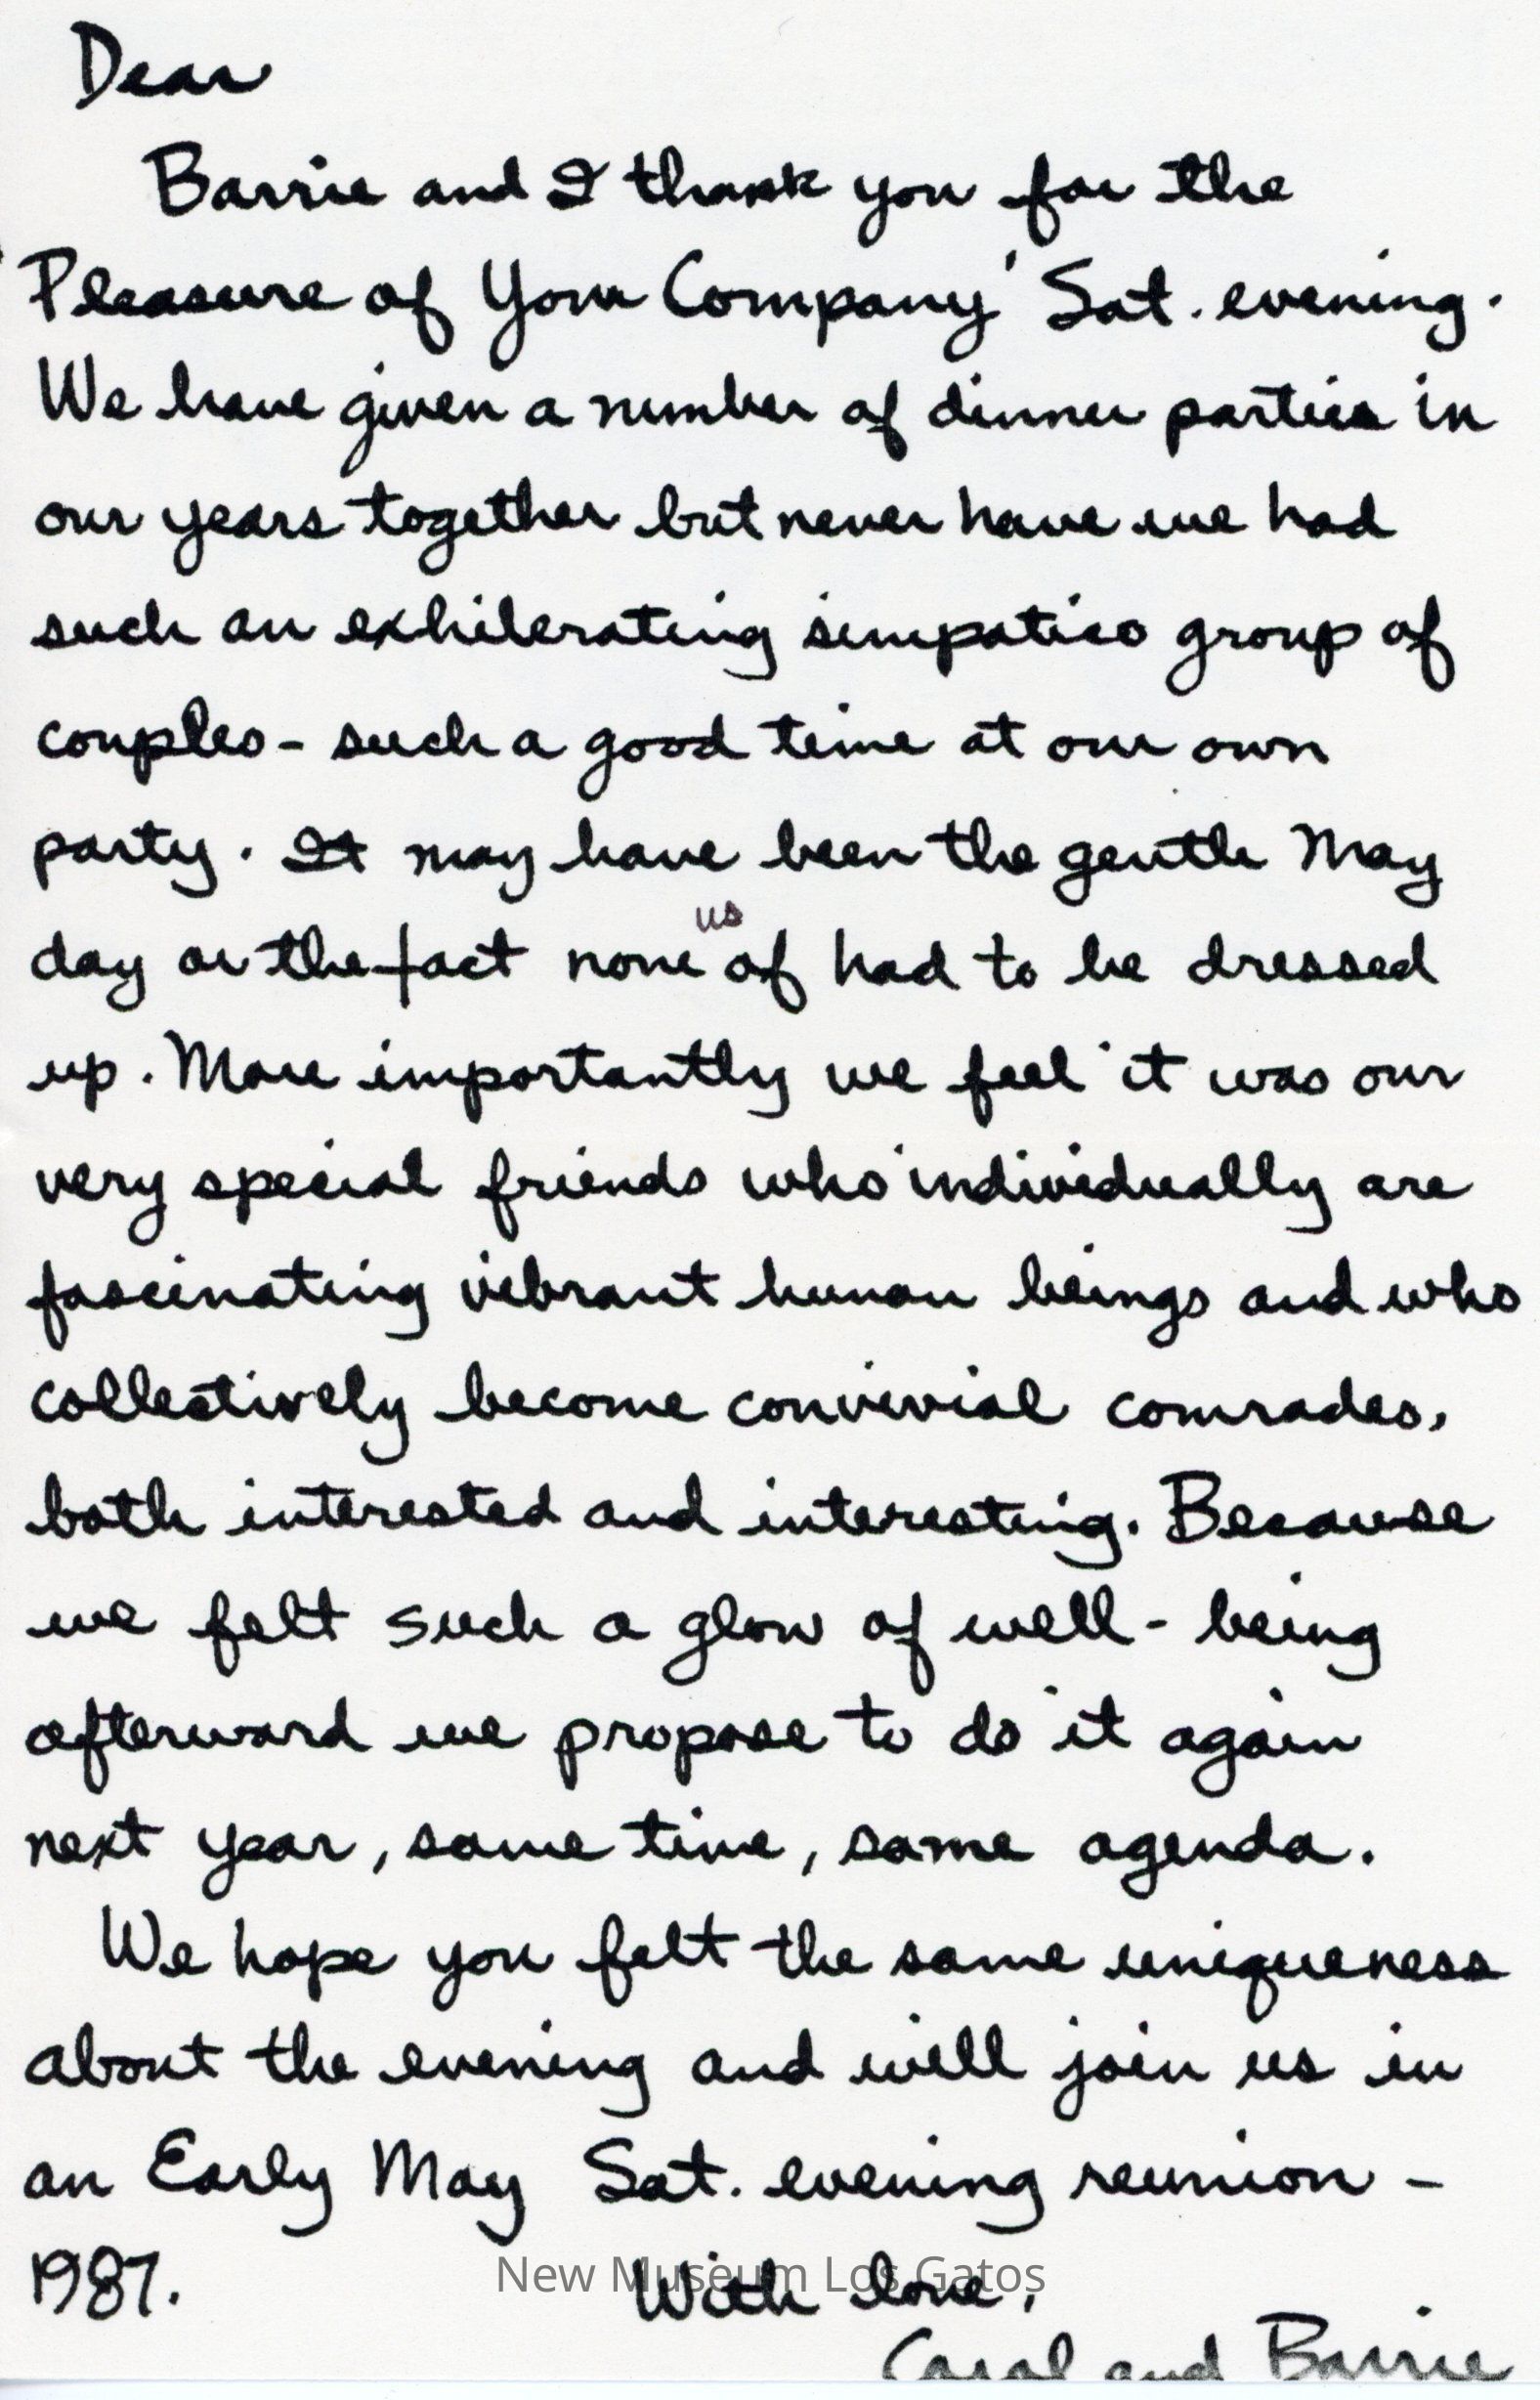 Dear
Barrie and I thank you for the
'Pleasure of Your Company' Sat. evening.
We have given a number of dinner parties in
our years together but never have we had
such an exhilerating simpatico group of
couples - such a good time at our own
party. It may have been the gentle May
us
day or the fact none of had to be dressed
up. More importantly we feel it was our
very special friends who individually are
fascinating vibrant human beings and who
collectively become convivial comrades,
both interested and interesting. Because
we felt such a glow of well-being
afterward we propose to do it again
next year, same time, same agenda.
We hope you felt the same uniqueness
about the evening and will join us in
an Early May Sat. evening reunion -
1987. With love,
New Museum Los Gatos
Carol and Barrie